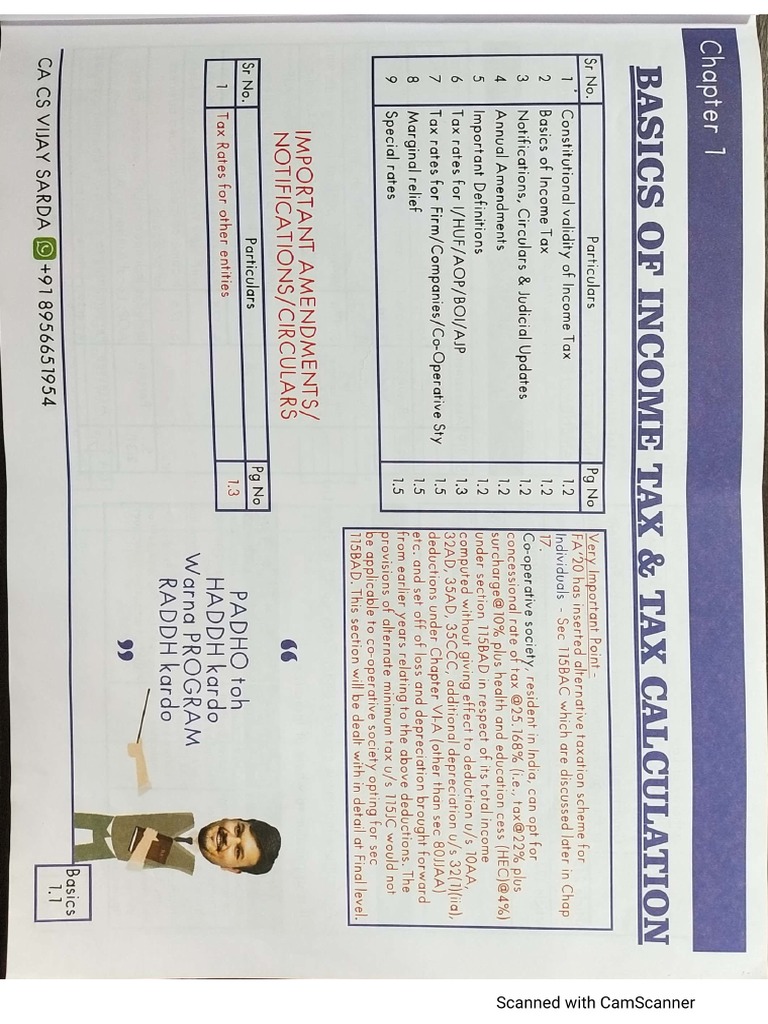 Chapter 1
BASICS OF INCOME TAX & TAX CALCULATION
Sr No. Particulars Pg No
1 Constitutional validity of Income Tax 1.2
2 Basics of Income Tax 1.2
3 Notifications, Circulars & Judicial Updates 1.2
4 Annual Amendments 1.2
5 Important Definitions 1.2
6 Tax rates for I/HUF/AOP/BOI/AJP 1.3
7 Tax rates for Firm/Companies/Co-Operative Sty 1.5
8 Marginal relief 1.5
9 Special rates 1.5
Very Important Point -
FA'20 has inserted alternative taxation scheme for
Individuals - Sec 115BAC which are discussed later in Chap
17.
Co-operative society, resident in India, can opt for
concessional rate of tax @25.168% (i.e., tax@22% plus
surcharge@10% plus health and education cess (HEC)@4%)
under section 115BAD in respect of its total income
computed without giving effect to deduction u/s 10AA,
32AD, 35AD, 35CCC, additional depreciation u/s 32(1)(iia),
deductions under Chapter VI-A (other than sec 80JJAA)
etc. and set off of loss and depreciation brought forward
from earlier years relating to the above deductions. The
provisions of alternate minimum tax u/s 115JC would not
be applicable to co-operative society opting for sec
115BAD. This section will be dealt with in detail at Final level.
IMPORTANT AMENDMENTS/
NOTIFICATIONS/CIRCULARS
Sr No. Particulars Pg No
1 Tax Rates for other entities 1.3
“
PADHO toh
HADDH kardo
Warna PROGRAM
RADDH kardo
”
CA CS VIJAY SARDA +91 8956651954
Basics
1.1
Scanned with CamScanner